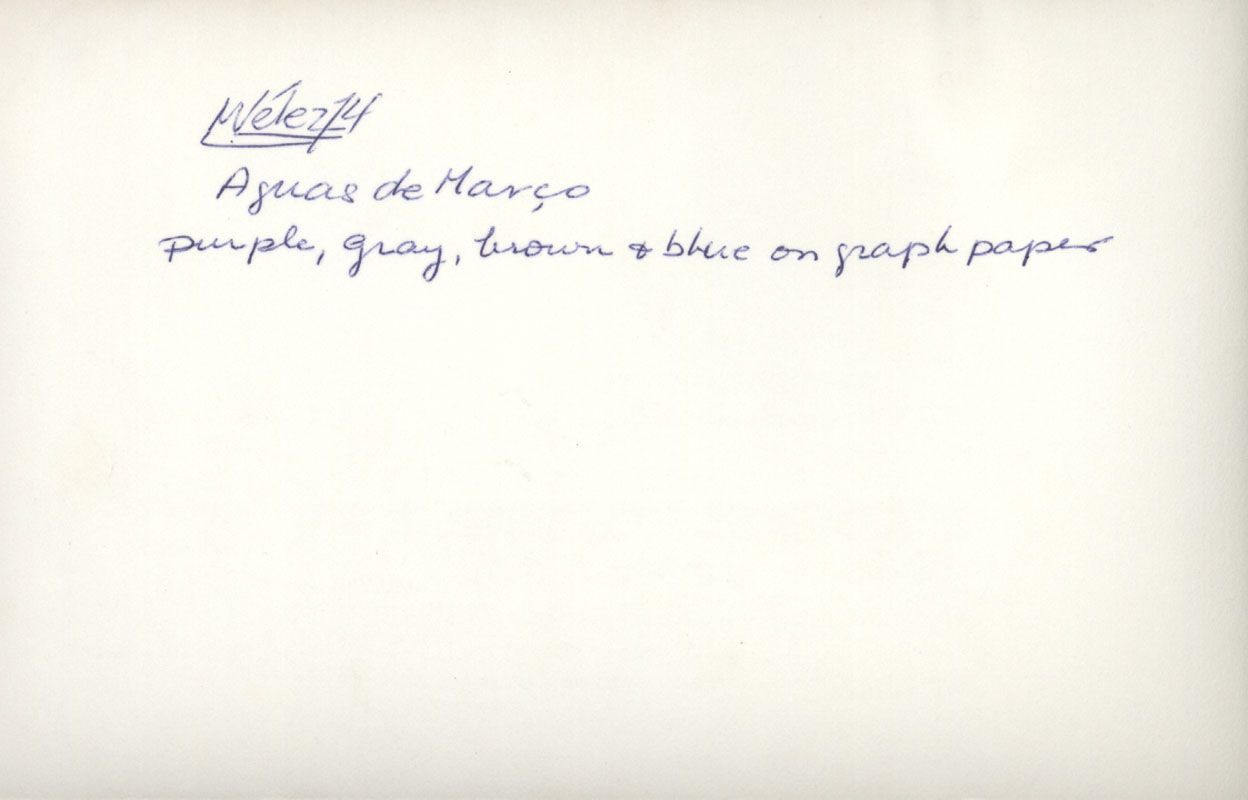 MVélez14
Aguas de Março
purple, gray, brown & blue on graph paper